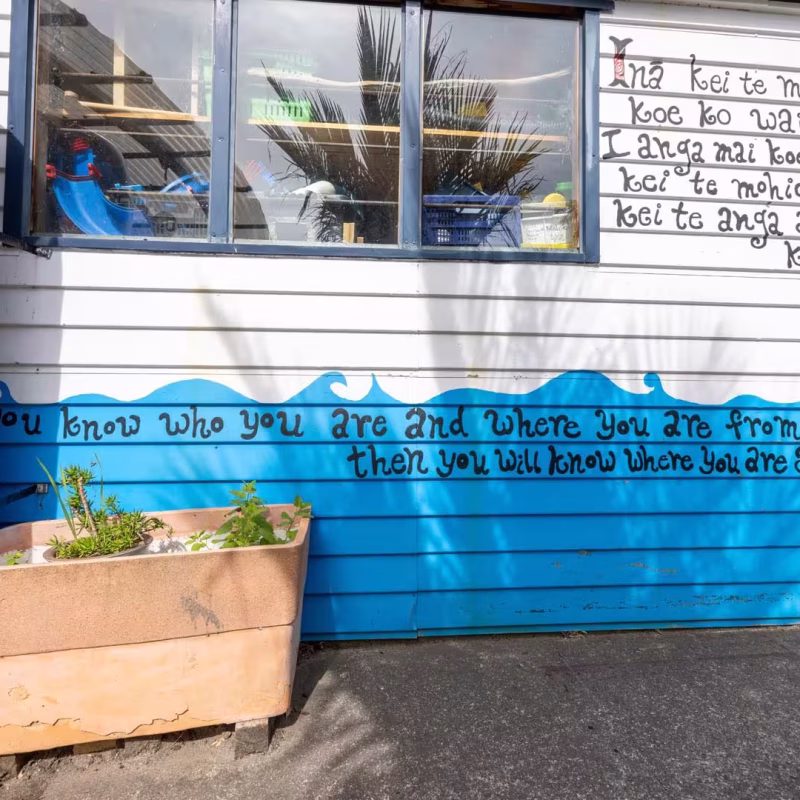 Inā kei te m
koe ko wa
I anga mai koe
kei te mohi
kei te anga a
k
ou know who you are and where you are from
then you will know where you are